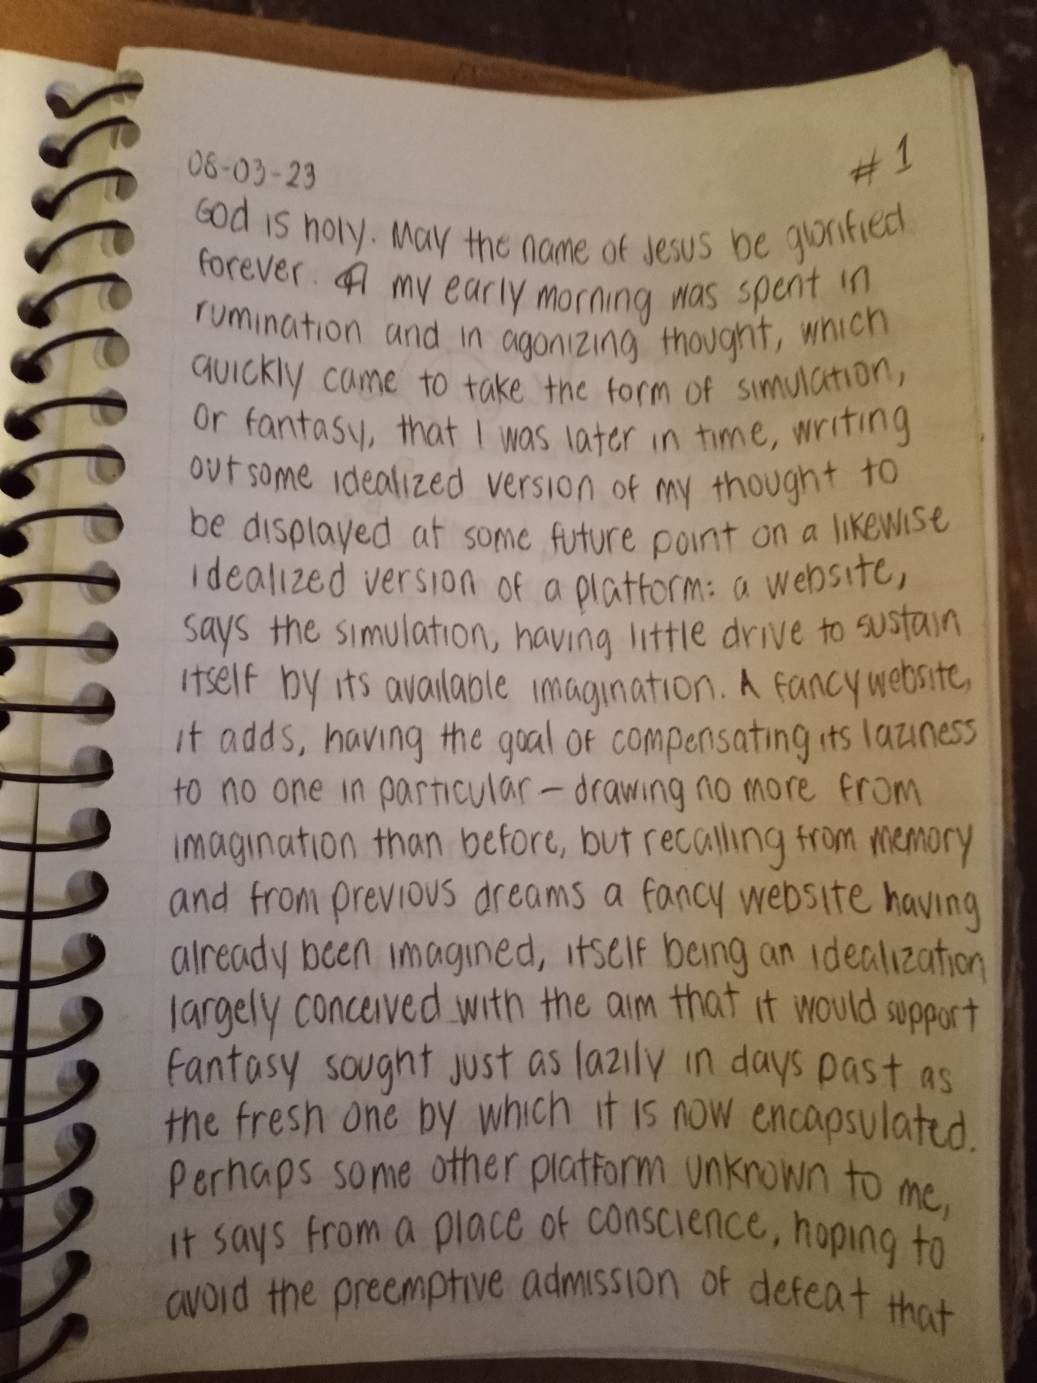 08-03-23
#1
God is holy. May the name of Jesus be glorified
forever. my early morning was spent in
rumination and in agonizing thought, which
quickly came to take the form of simulation,
or fantasy, that I was later in time, writing
out some idealized version of my thought to
be displayed at some future point on a likewise
idealized version of a platform: a website,
says the simulation, having little drive to sustain
itself by its available imagination. A fancy website,
it adds, having the goal of compensating its laziness
to no one in particular — drawing no more from
imagination than before, but recalling from memory
and from previous dreams a fancy website having
already been imagined, itself being an idealization
largely conceived with the aim that it would support
fantasy sought just as lazily in days past as
the fresh one by which it is now encapsulated.
Perhaps some other platform unknown to me,
it says from a place of conscience, hoping to
avoid the preemptive admission of defeat that